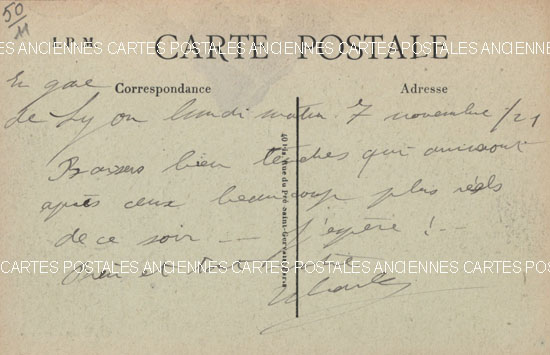 50
11
I.P.M
CARTE POSTALE
CARTES POSTALES ANCIENNES CARTES POSTALES ANCIENNES CARTES POSTALES
Correspondance
Adresse
En gare
de Lyon lundi matin 7 novembre/21
Baisers bien tendres qui arriveront
après ceux beaucoup plus réels
de ce soir -- J'espère ! -
CARTES POSTALES ANCIENNES CARTES POSTALES ANCIENNES CARTES POSTALES
à
Charles
rue du Pré Saint-Gervais